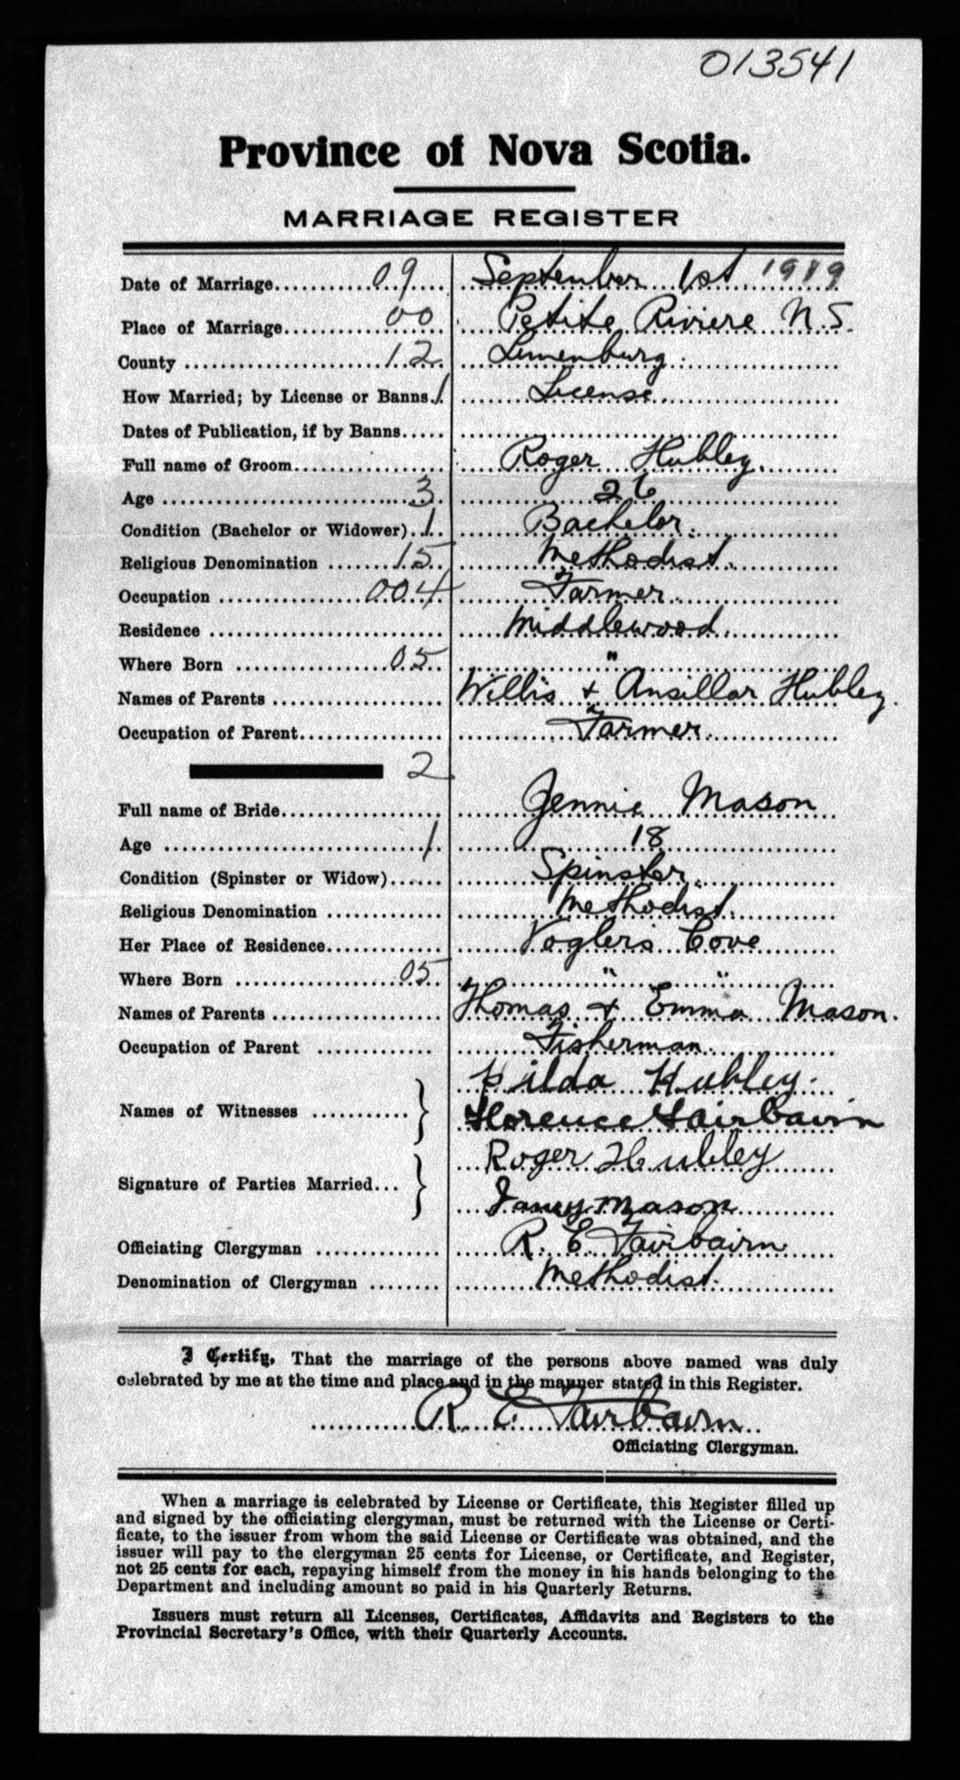 013541
Province of Nova Scotia.
MARRIAGE REGISTER
Date of Marriage 09 September 1st 1919
Place of Marriage 00 Petite Riviere N.S.
County 12 Lunenburg
How Married; by License or Banns 1 License
Dates of Publication, if by Banns
Full name of Groom Roger Hubley
Age 3 26
Condition (Bachelor or Widower) 1 Bachelor
Religious Denomination 15 Methodist
Occupation 004 Farmer
Residence Middlewood
Where Born 05 "
Names of Parents Willis + Ansillar Hubley
Occupation of Parent Farmer
2
Full name of Bride Jennie Mason
Age 1 18
Condition (Spinster or Widow) Spinster
Religious Denomination Methodist
Her Place of Residence Vogler's Cove
Where Born 05 " "
Names of Parents Thomas + Emma Mason.
Occupation of Parent Fisherman
Names of Witnesses } Hilda Hubley
Florence Fairbairn
Signature of Parties Married } Roger Hubley
Mason
Officiating Clergyman R. E. Fairbairn
Denomination of Clergyman Methodist
I Certify, That the marriage of the persons above named was duly
celebrated by me at the time and place and in the manner stated in this Register.
R E Fairbairn
Officiating Clergyman.
When a marriage is celebrated by License or Certificate, this Register filled up
and signed by the officiating clergyman, must be returned with the License or Certi-
ficate, to the issuer from whom the said License or Certificate was obtained, and the
issuer will pay to the clergyman 25 cents for License, or Certificate, and Register,
not 25 cents for each, repaying himself from the money in his hands belonging to the
Department and including amount so paid in his Quarterly Returns.
Issuers must return all Licenses, Certificates, Affidavits and Registers to the
Provincial Secretary's Office, with their Quarterly Accounts.